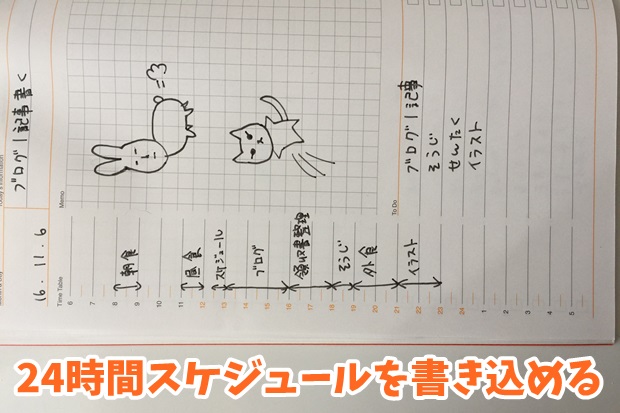 16.11.6
ブログ1記事書く
Time Table
6
7
8
朝食
9
10
11
昼食
12
スケジュール
13
14
ブログ
15
16
領収書整理
17
18
そうじ
19
外食
20
21
イラスト
22
23
24
1
2
3
4
5
Memo
To Do
ブログ1記事
そうじ
せんたく
イラスト
24時間スケジュールを書き込める